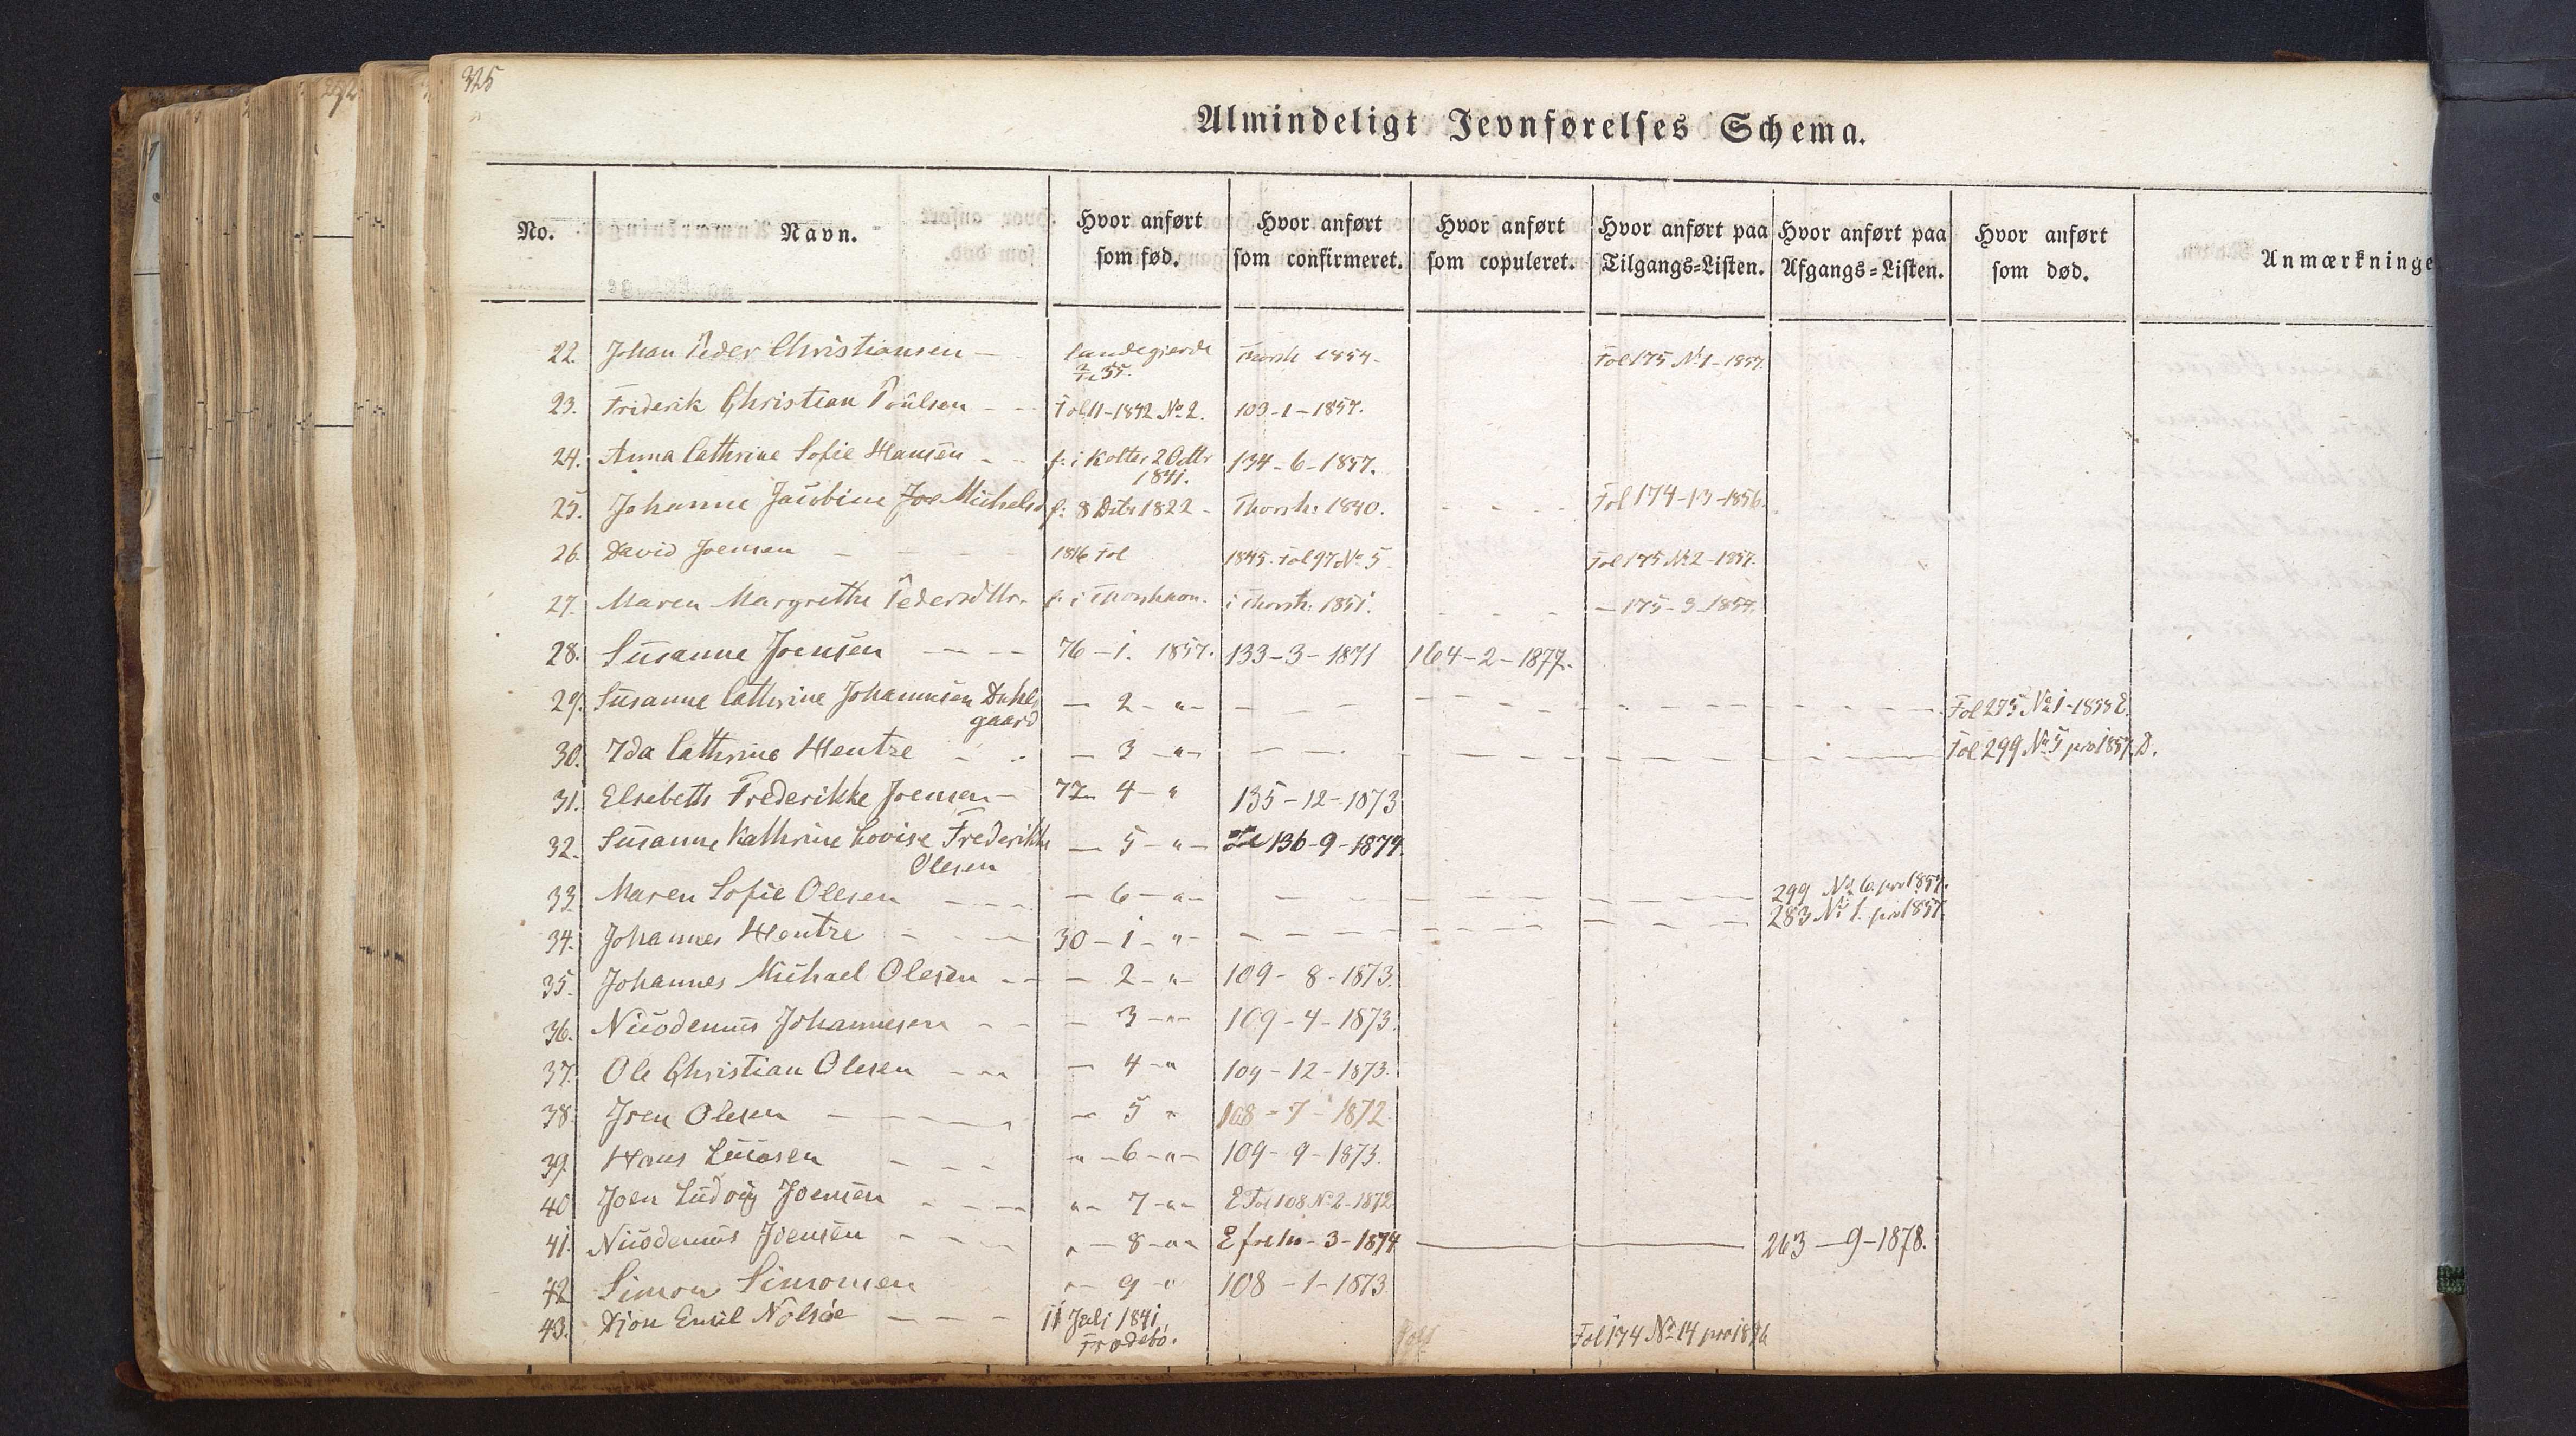 325
Almindeligt Jevnførelses Schema.
No. Navn. Hvor anført som fød. Hvor anført som confirmeret. Hvor anført som copuleret. Hvor anført paa Tilgangs=Listen. Hvor anført paa Afgangs=Listen. Hvor anført som død. Anmærkninge
22. Johan Peder Christiansen - Fol 175 No 1 - 1857.
23. Friderik Christian Poulsen - - Fol 11-1842 No 2. 103-1-1857.
24. Anna Cathrine Sofie Hansen - - f. i Kolter 2 Octbr 1841. 134-6-1857.
25. Johanne Jacobine f: 8 1822 - Thorsh: 1840. Fol 174-13-1856.
26. David Joensen - - - 1816 Fol 1845. Fol 97 No 5 Fol 175 No 2-1857.
27. Maren Margrethe f. i Thorshavn. i Thorsh: 1851. - 175-3-1857.
28. Susanne Joensen - - - 76-1. 1857. 133-3-1871 164-2-1877.
29. Susanne Cathrine Johannesen Dahls
gaard - 2 - " - Fol 275 No 1-
30. Ida Cathrine Hentze - - - 3 - " - Fol 299 No 5 pro 1857. D.
31. Elsebeth Frederikke Joensen - 77 - 4 - " 135-12-1873
32. Susanne Kathrine Lovise Frederikke
Olesen - 5 - " - 136-9-1874.
33. Maren Sofie Olesen - - - - 6 - " - 299 No 6. pro 1857.
34. Johannes Hentze - - - 30-1-" - 283 No 1. pro 1857.
35. Johannes Michael Olesen - - - 2 - " - 109-8-1873.
36. Nicodemus Johannesen - - - 3 - " - 109-4-1873.
37. Ole Christian Olesen - - - 4 - " 109-12-1873.
38. Joen Olesen - - - - 5 " 108-7-1872.
39. Hans - - - " - 6 - " - 109-9-1873.
40. Joen Ludvig Joensen - - - " - 7 - " - Fol 108 No 2-1872
41. Nicodemus Joensen - - - " - 8 - " - 3-1874 263-9-1878.
42. Simon Simonsen " - 9 - " 108-1-1873.
43. Djon Emil Nolsøe - - - 11 Juli 1841, Frodebø. Fol 174 No 14 pro 1856